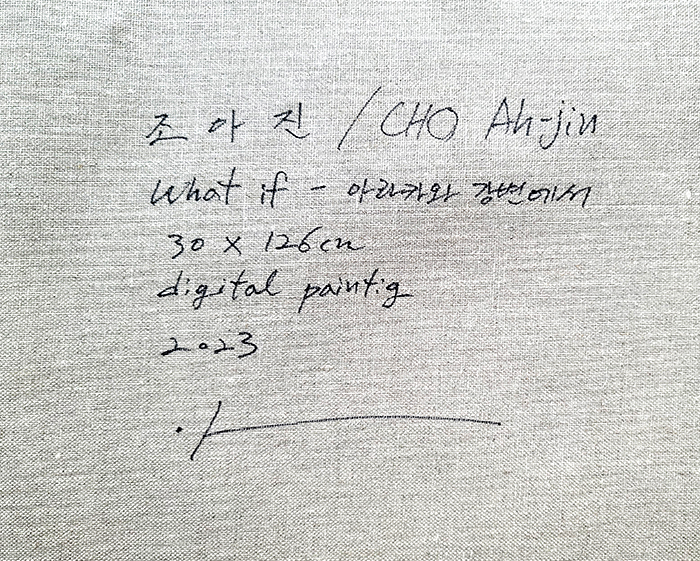 조아진 / CHO Ah-jin
What if - 아라카와 강변에서
30 x 126cm
digital paintig
2023